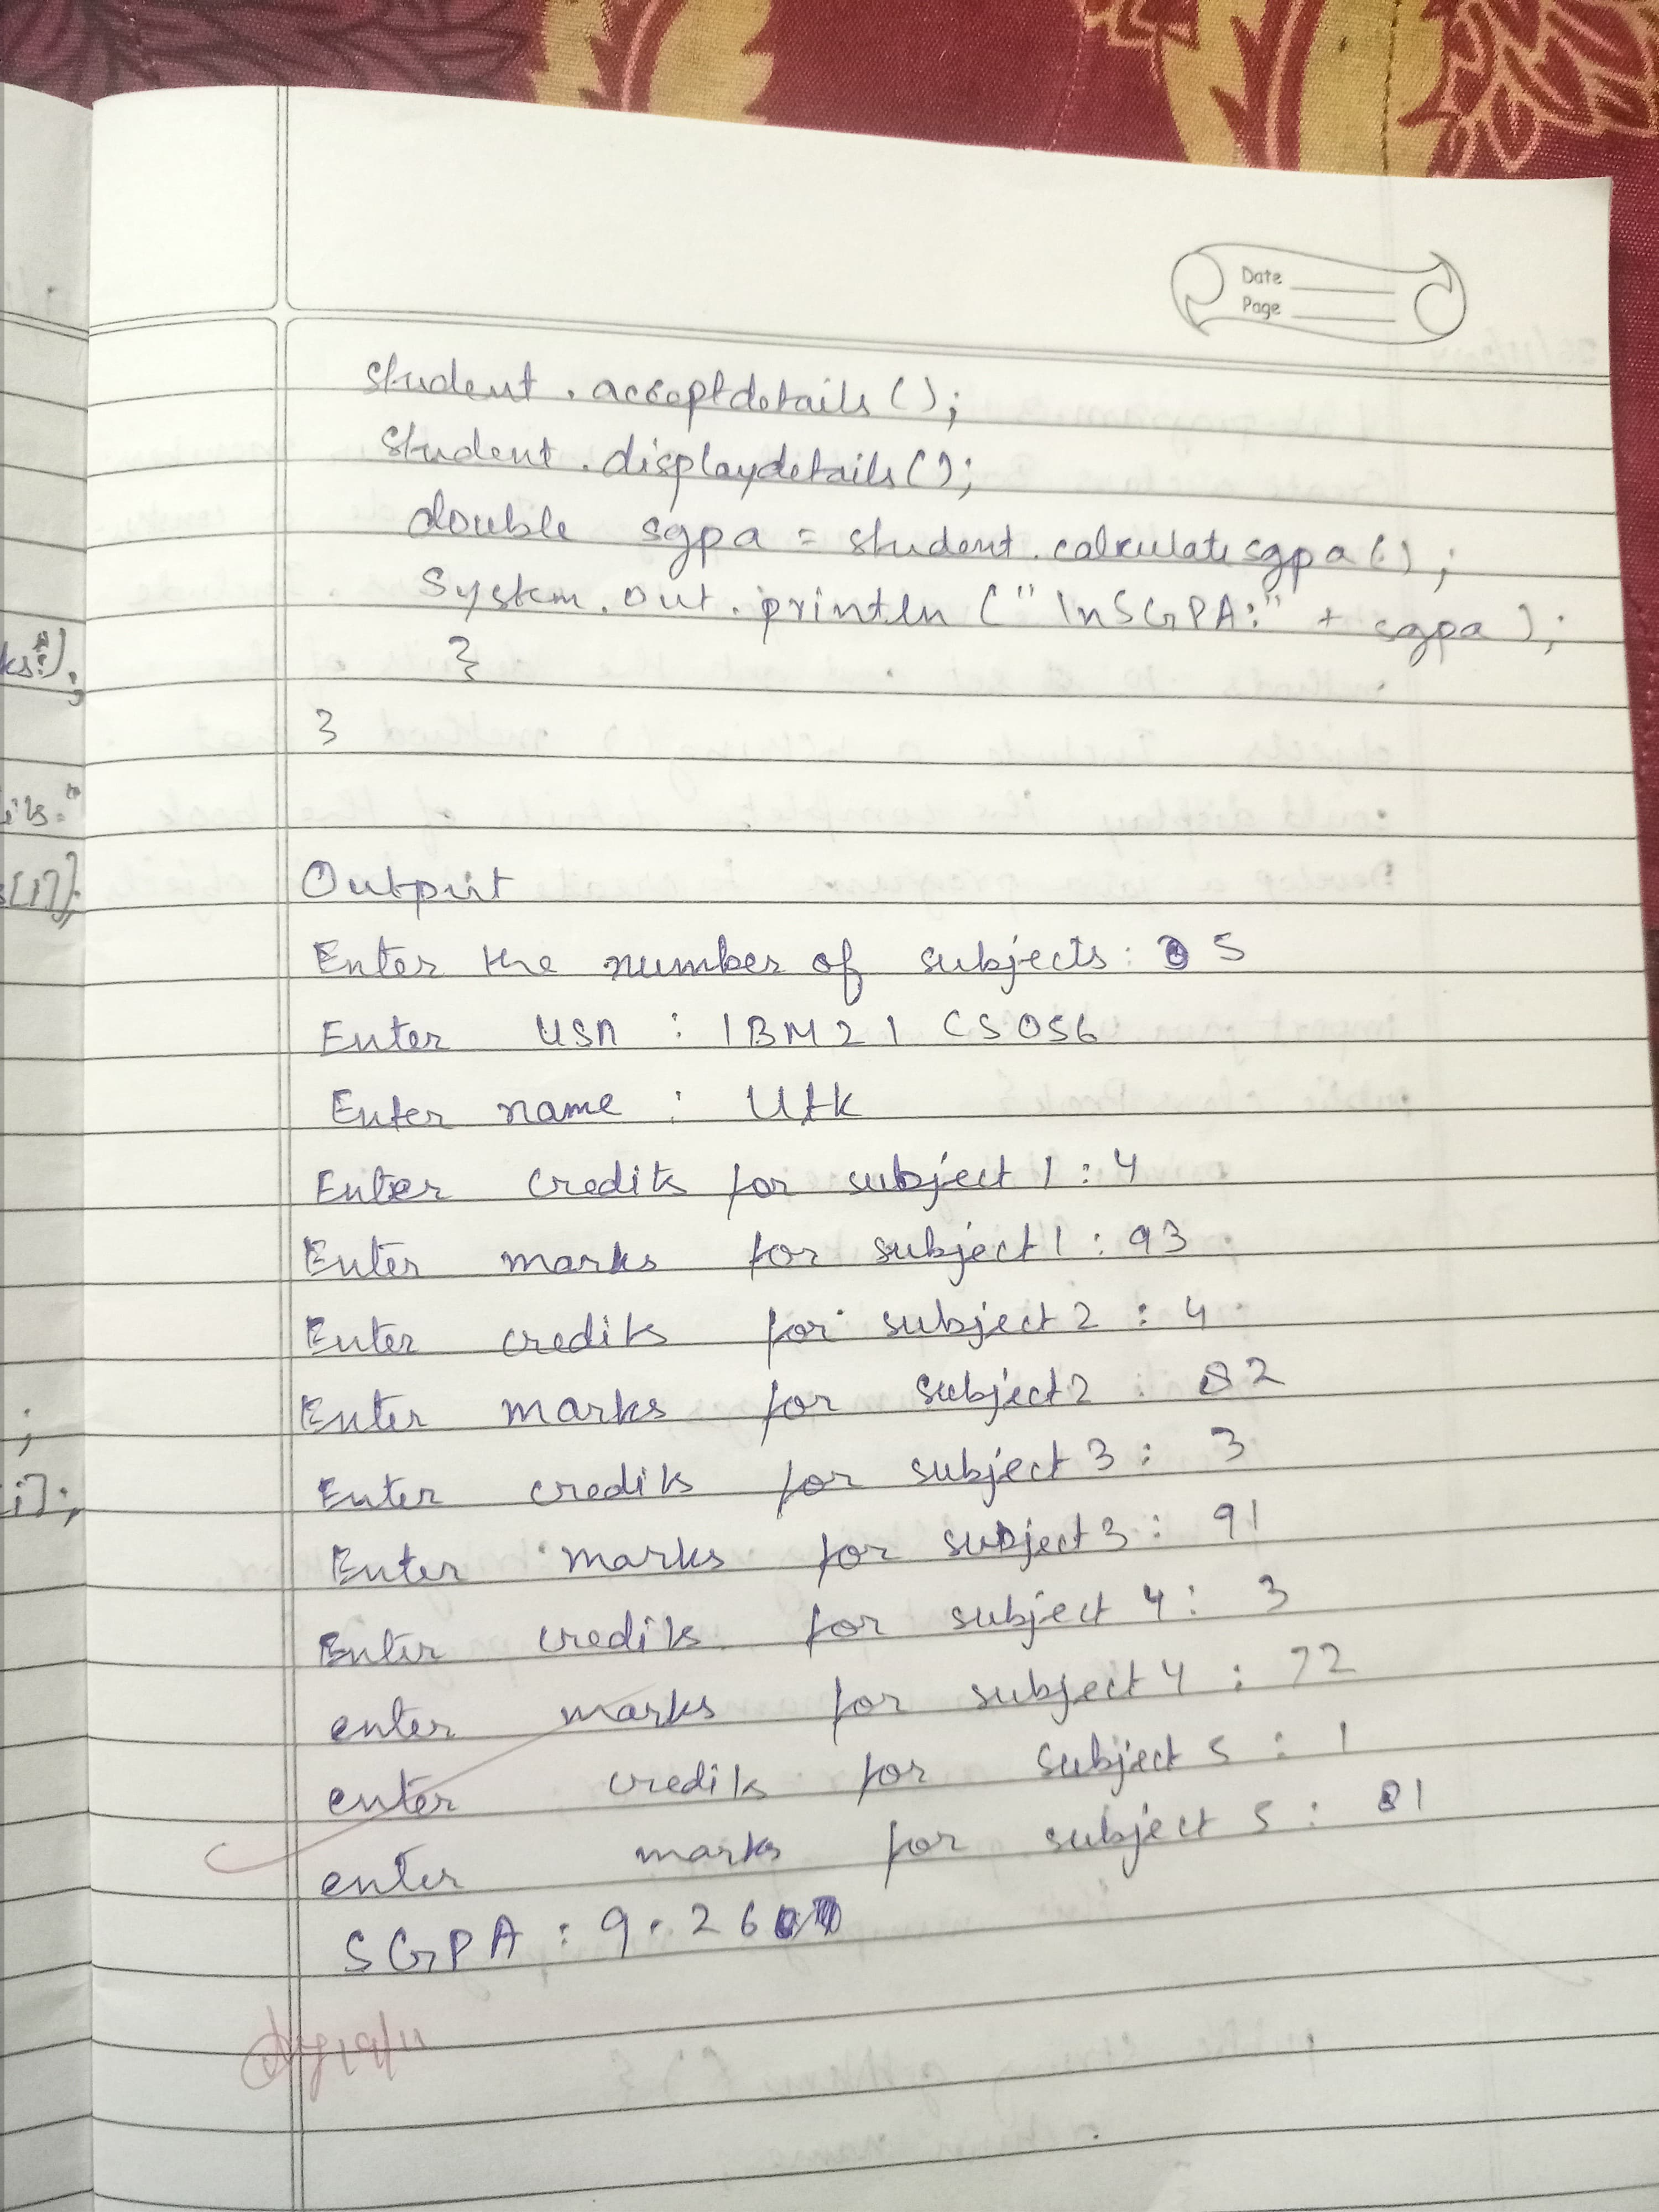 Date
Page
student.acceptdetails();
student.displaydetails();
double sgpa = student.calculatesgpa();
System.out.println("\nSGPA:" + sgpa);
}
}
Output
Enter the number of subjects: 5
Enter USN : 1BM21CS056
Enter name : Utk
Enter credits for subject 1 : 4
Enter marks for subject 1 : 93
Enter credits for subject 2 : 4
Enter marks for subject 2 : 82
Enter credits for subject 3 : 3
Enter marks for subject 3 : 91
Enter credits for subject 4 : 3
enter marks for subject 4 : 72
enter credits for subject 5 : 1
enter marks for subject 5 : 81
SGPA : 9.26
19/11